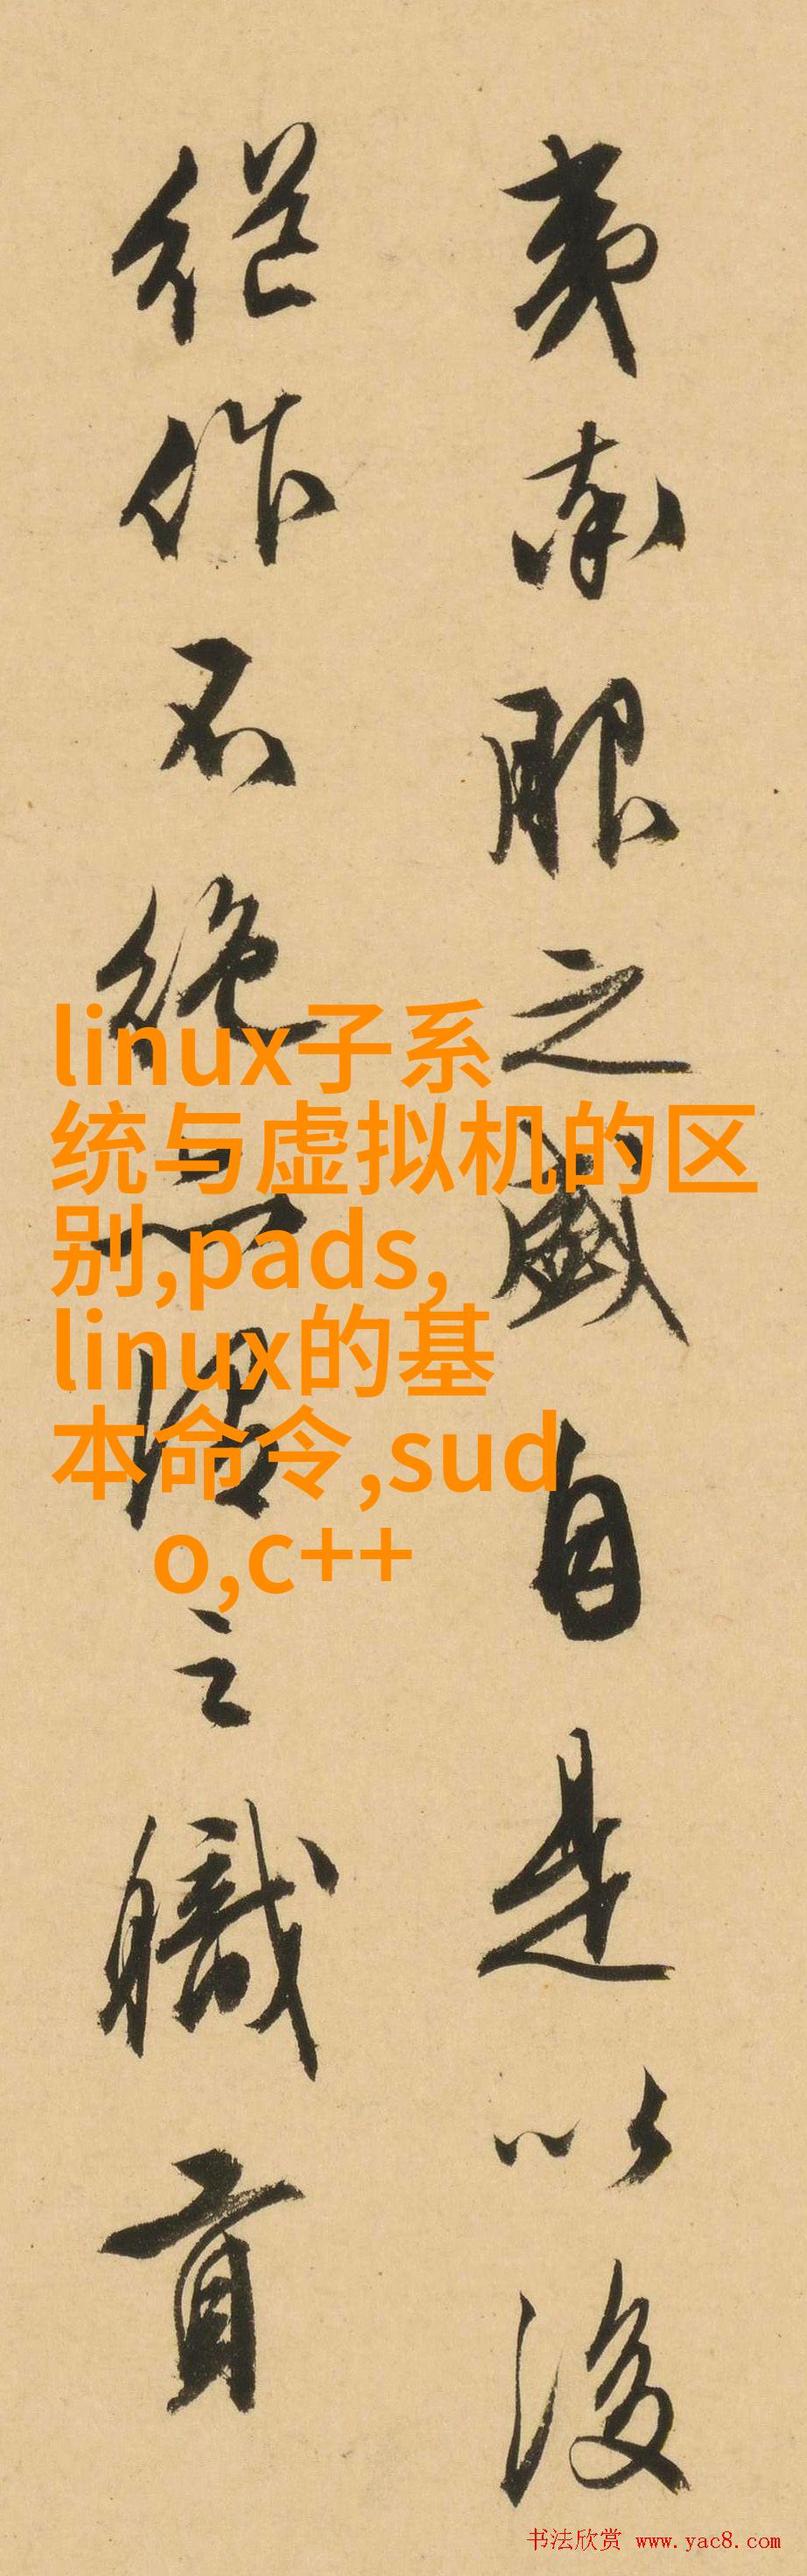 夷率服之盛自是以後
継作不絶之職貢
linux子系
统与虚拟机的区
别,pads,
linux的基
本命令,sud
o,c++
书法欣赏 www.yac8.com